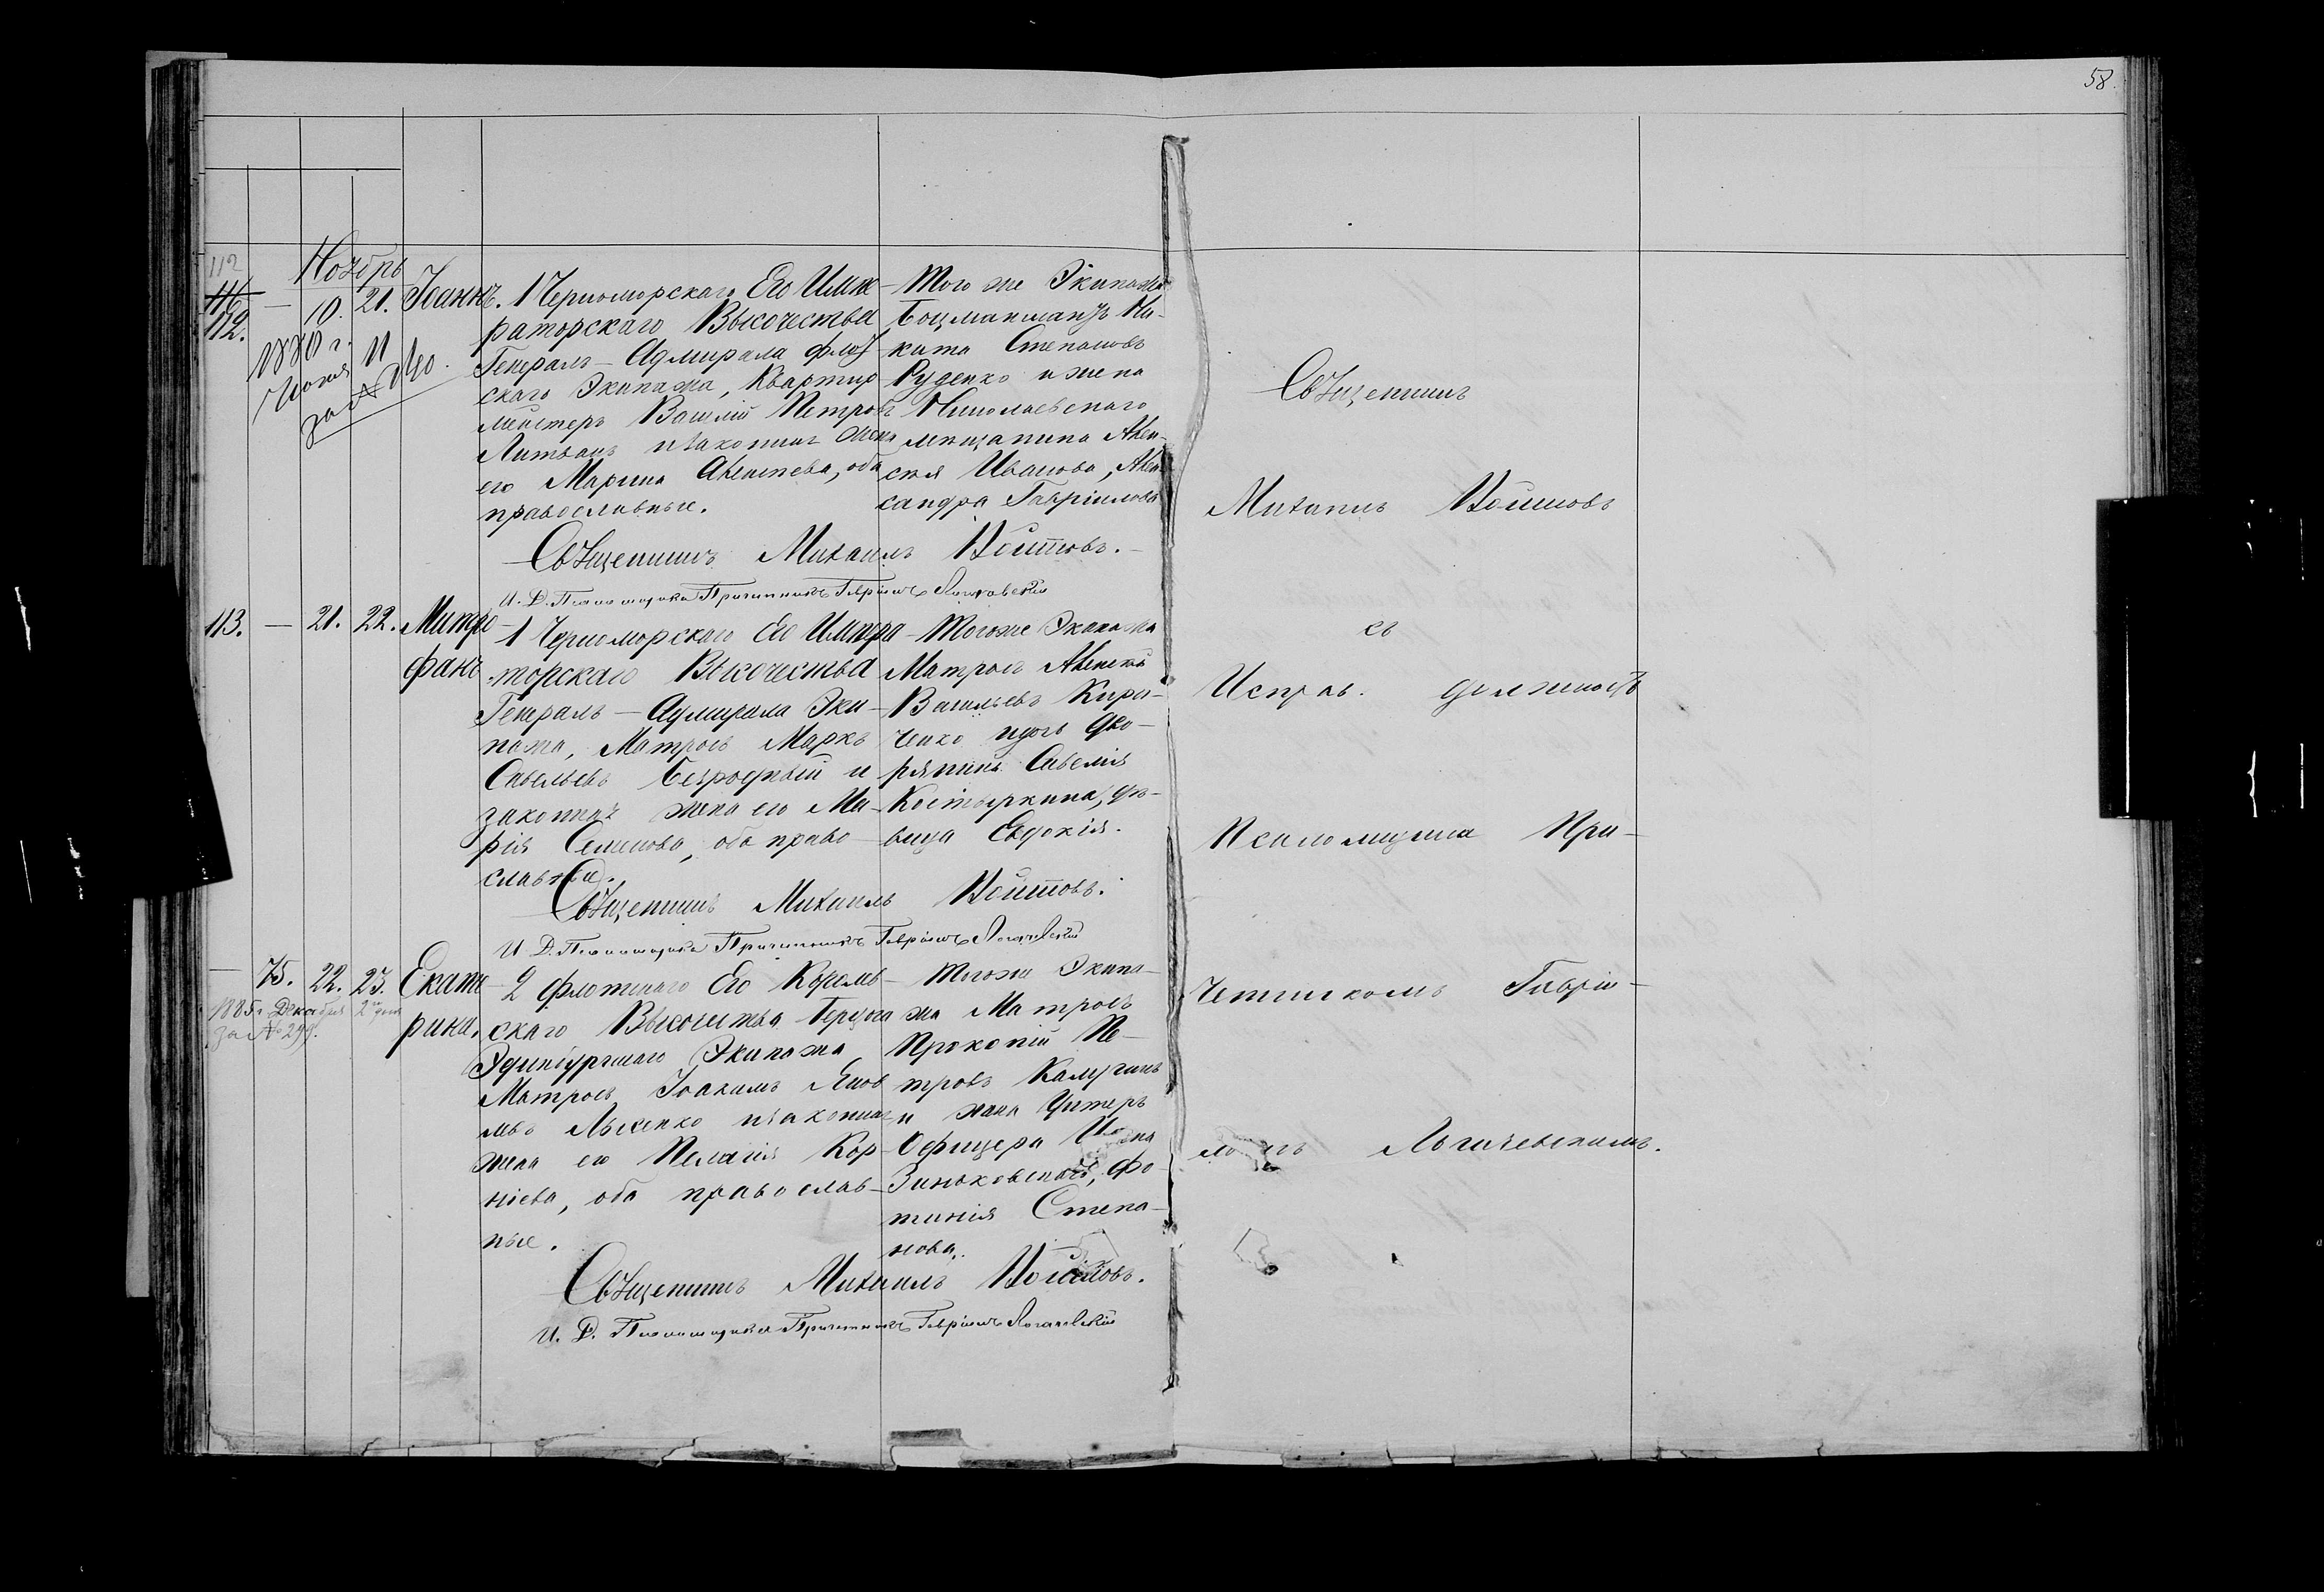 58.
Ноябрь
112
116
112.
— 10. 21. Іоаннъ.
1880 г.
Июня 11
за № 240.
1 Черноморскаго Его Импе-
раторскаго Высочества
Генералъ-Адмирала флот
скаго Экипажа, Квартир
мейстеръ Василій Петровъ
Литвинъ и законная жена
его Марина Алексѣева, оба
православные.
Того же Экипажа
Боцманматъ Ни-
кита Степановъ
Руденко и жена
Николаевскаго
мѣщанина Алек-
сѣя Иванова, Алек
сандра Гавріилова
Священникъ Михаилъ Войтовъ.
И. Д. Псаломщика Причетникъ Гавріилъ
113. — 21. 22. Митро-
фанъ.
1 Черноморскаго Его Импера-
торскаго Высочества
Генералъ-Адмирала Эки-
пажа, Матросъ Маркъ
Савельевъ Безродный и
законная жена его Ма-
рія Семенова, оба право-
славные.
Тогоже Экипажа
Матросъ Алексѣй
Васильевъ Кири-
ченко и дочь дво-
рянина Савелія
Костыркина, дѣ-
вица Евдокія.
Священникъ Михаилъ Войтовъ.
И. Д. Псаломщика Причетникъ Гавріилъ
— 75. 22. 23. Екате-
рина.
1885 г. Декабря 2 дня
за № 299.
2 флотскаго Его Королев-
скаго Высочества Герцога
Эдинбургскаго Экипажа
Матросъ Іоакимъ Яков
левъ Лысенко и законная
жена его Пелагія Кор-
ніева, оба православ-
ные.
Тогоже Экипа-
жа Матросъ
Прокопій Пе-
тровъ Калугинъ
и жена Унтеръ
Офицера
Зиньковскаго, Фо-
тинія Степа-
нова.
Священникъ Михаилъ Войтовъ.
И. Д. Псаломщика Причетникъ Гавріилъ
Священникъ
Михаилъ Войтовъ
съ
Исправ. должность
Псаломщика При-
четникомъ Гавріи-
ломъ